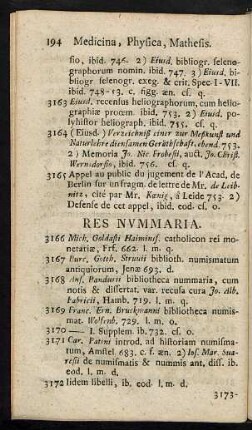 194 Medicina, Physica, Mathesis.
sio, ibid. 746. 2) Eiusd. bibliogr. seleno-
graphorum nomin. ibid. 747. 3) Eiusd. bi-
bliogr. selenogr. exeg. & crit. Spec. I-VII.
ibid. 748-13. c. figg. æn. cf. q.
3163 Eiusd. recensus heliographorum, cum helio-
graphiæ proœm. ibid. 753. 2) Eiusd. po-
lyhistor heliograph. ibid. 755. cf. q.
3164 (Eiusd.) Verzeichniß einer zur Meßkunst und
Naturlehre diensamen Geräthschaft. ebend. 753.
2) Memoria Jo. Nic. Frobesii, auct. Jo. Christ.
Wernsdorfio, ibid. 756. cf. q.
3165 Appel au public du jugement de l'Acad. de
Berlin sur un fragm. de lettre de Mr. de Leib-
nitz, cité par Mr. Kœnig, à Leide 753. 2)
Defense de cet appel, ibid. eod. cf. o.
RES NVMMARIA.
3166 Mich. Goldasti Haiminsf. catholicon rei mo-
netariæ, Frf. 662. l. m. q.
3167 Burc. Gotth. Struvii biblioth. numismatum
antiquiorum, Jenæ 693. d.
3168 Ans. Bandurii bibliotheca nummaria, cum
notis & dissertat. var. recusa cura Jo. Alb.
Fabricii, Hamb. 719. l. m. q.
3169 Franc. Ern. Bruckmanni bibliotheca numis-
mat. Wolfenb. 729. l. m. o.
3170 — I. Supplem. ib. 732. cf. o.
3171 Car. Patini introd. ad historiam numisma-
tum, Amstel. 683. c. f. æn. 2) Jos. Mar. Sua-
resii de numismatis & nummis ant. diss. ib.
eod. l. m. d.
3172 Iidem libelli, ib. eod. l. m. d.
3173-